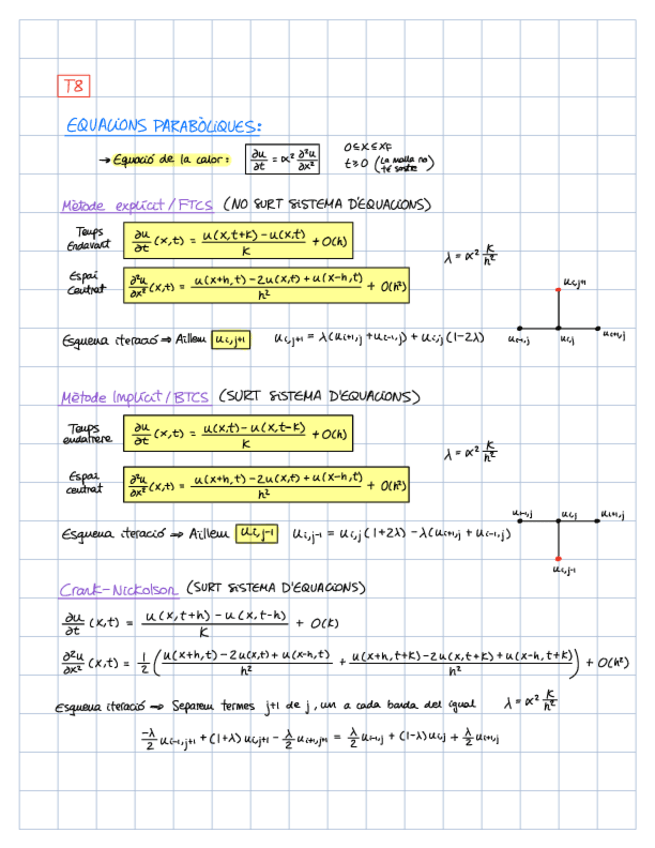 T8
EQUACIONS PARABÒLIQUES:
→ Equació de la calor: ∂u/∂t = α² ∂²u/∂x² 0≤x≤xF
t≥0 (La malla no té sostre)
Mètode explícit/FTCS (NO SURT SISTEMA D'EQUACIONS)
Temps Endavant ∂u/∂t (x,t) = (u(x,t+k) - u(x,t))/K + O(h)
λ = α² K/h²
Espai Centrat ∂²u/∂x² (x,t) = (u(x+h,t) - 2u(x,t) + u(x-h,t))/h² + O(h²)
ui,j+1
Esquema iteració ⇒ Aïllem ui,j+1 ui,j+1 = λ(ui+1,j + ui-1,j) + ui,j (1-2λ)
ui-1,j ui,j ui+1,j
Mètode Implícit/BTCS (SURT SISTEMA D'EQUACIONS)
Temps endarrere ∂u/∂t (x,t) = (u(x,t) - u(x,t-k))/K + O(h)
λ = α² K/h²
Espai centrat ∂²u/∂x² (x,t) = (u(x+h,t) - 2u(x,t) + u(x-h,t))/h² + O(h²)
ui-1,j ui,j ui+1,j
Esquema iteració ⇒ Aïllem ui,j-1 ui,j-1 = ui,j (1+2λ) - λ(ui+1,j + ui-1,j)
ui,j-1
Crank-Nickolson (SURT SISTEMA D'EQUACIONS)
∂u/∂t (x,t) = (u(x,t+h) - u(x,t-h))/K + O(k)
∂²u/∂x² (x,t) = 1/2 ((u(x+h,t) - 2u(x,t) + u(x-h,t))/h² + (u(x+h,t+k) - 2u(x,t+k) + u(x-h,t+k))/h²) + O(h²)
Esquema iteració ⇒ Separem termes j+1 de j, un a cada banda del igual λ = α² K/h²
-λ/2 ui-1,j+1 + (1+λ) ui,j+1 - λ/2 ui+1,j+1 = λ/2 ui-1,j + (1-λ) ui,j + λ/2 ui+1,j